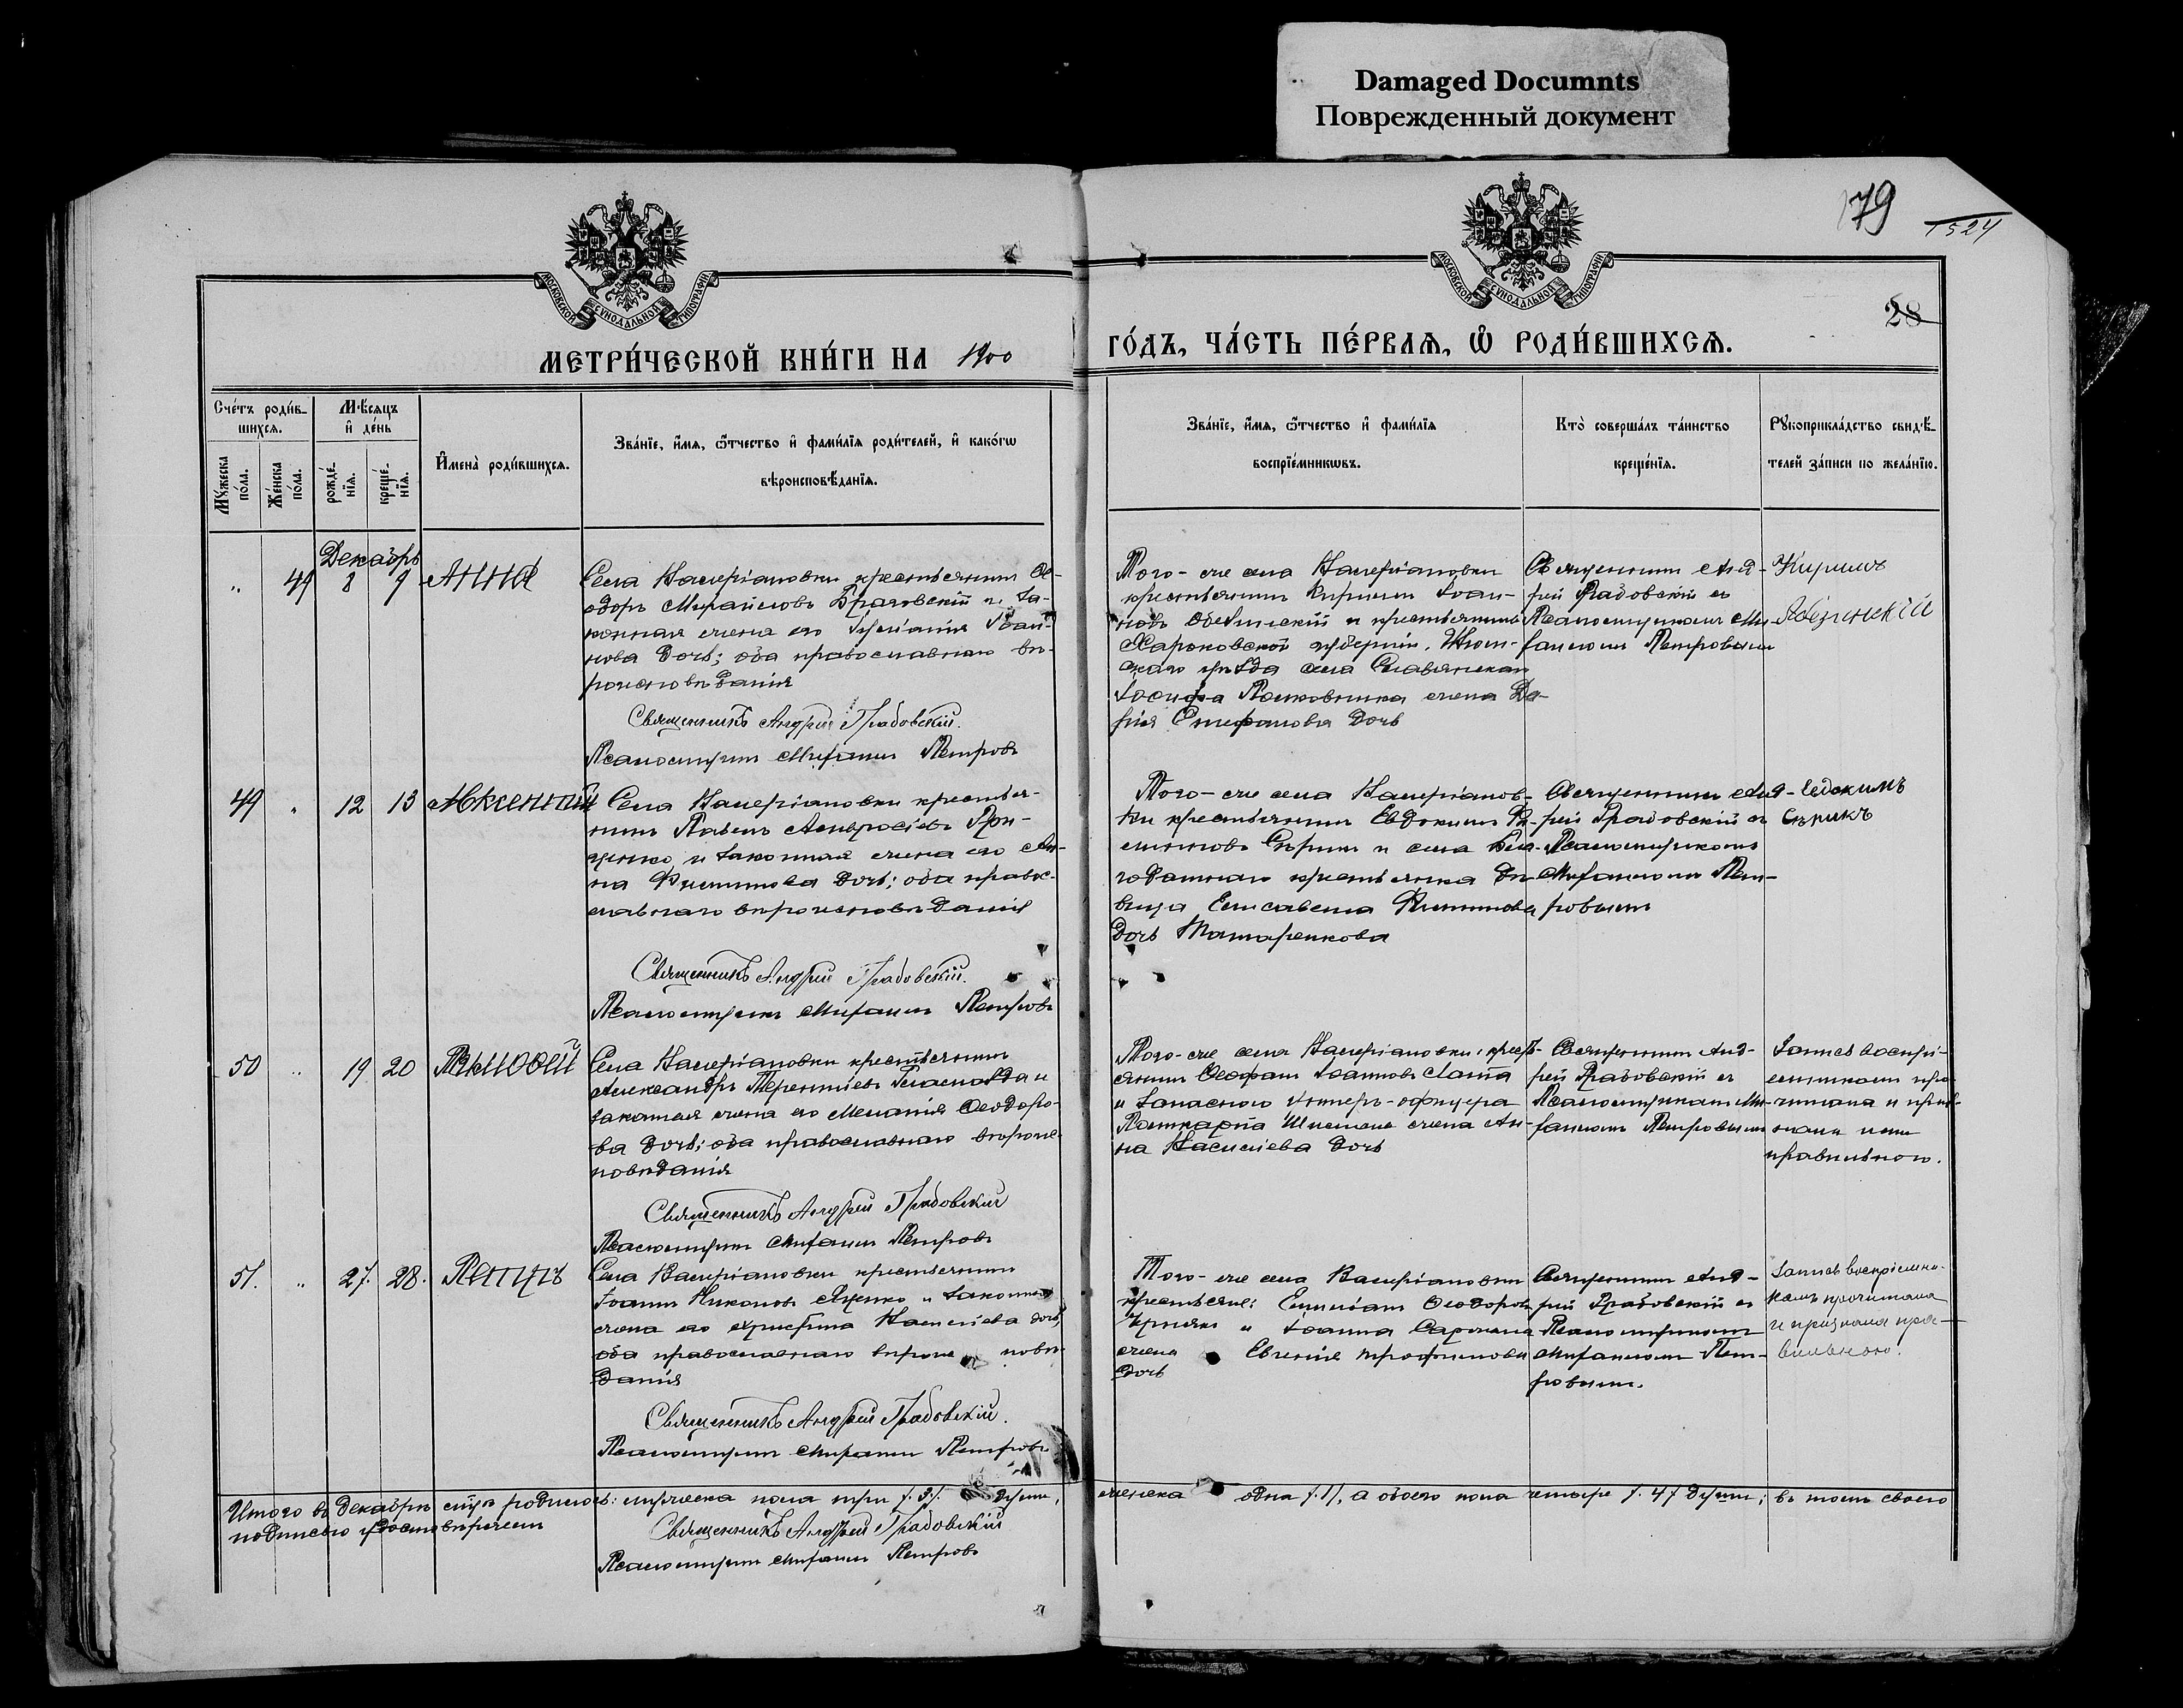 Damaged Documnts
Поврежденный документ
79
1524
28
МОСКОВСКОЙ СѴНОДАЛЬНОЙ ТИПОГРАФІИ
МОСКОВСКОЙ СѴНОДАЛЬНОЙ ТИПОГРАФІИ
МЕТРИ́ЧЕСКОЙ КНИ́ГИ НА 1900
ГО́ДЪ, ЧА́СТЬ ПЕ́РВАѦ, Ѡ҆ РОДИ́ВШИХСѦ.
Сче́тъ роди́в-
шихсѧ.
Мꙋ́жеска по́ла.
Же́нска по́ла.
Мѣ́сѧцъ
и҆ де́нь
рожде́нїѧ.
креще́нїѧ.
И҆мена̀ роди́вшихсѧ.
Зва́нїе, и҆́мѧ, ѻ҆́тчество и҆ фами́лїѧ роди́телей, и҆ како́гѡ
вѣроисповѣ́данїѧ.
Зва́нїе, и҆́мѧ, ѻ҆́тчество и҆ фами́лїѧ
воспрїе́мникѡвъ.
Кто̀ соверша́лъ та́инство
креще́нїѧ.
Рꙋкоприкла́дство свидѣ́-
телей за́писи по жела́нїю.
Декабрь
49 8 9 Анна
Села Валеріановки крестьянинъ Ѳе-
одоръ Михайловъ Браговскій и за-
конная жена его Іоан-
нова дочь; оба православнаго вѣ-
роисповѣданія
Священникъ АндрейГрадовскій.
Псаломщикъ Митрофанъ Петровъ
Того-же села Валеріановки
крестьянинъ Кириллъ Іоан-
новъ и крестьянина
Харьковской губерніи, Изюм-
скаго уѣзда села Славянска
Іосифа Полковника жена Да-
рія Стефанова дочь
Священникъ Анд-
рей Градовскій съ
Псаломщикомъ Ми-
Петровымъ
Кириллъ
49 12 13 Авксентій
Села Валеріановки крестья-
нинъ Павелъ Амвросіевъ Гри-
щенко и законная жена его Ан-
на Филиппова дочь; оба правос-
лавнаго вѣроисповѣданія
Священникъ Андрей Градовскій.
Псаломщикъ Митрофанъ Петровъ
Того-же села Валеріанов-
ки крестьянинъ Евдокимъ Фи-
липповъ Сѣрикъ и села Бла-
годатнаго крестьянка дѣ-
вица Елисавета Филиппова
дочь Татаренкова
Священникъ Анд-
рей Градовскій съ
Псаломщикомъ
Пет-
ровымъ
Евдокимъ
Сѣрикъ
50 19 20
Села Валеріановки крестьянинъ
Александръ Терентіевъ и
законная жена его Меланія Ѳеодоро-
ва дочь; оба православнаго вѣроис-
повѣданія
Священникъ Андрей Градовскій
Псаломщикъ Митрофанъ Петровъ
Того-же села Валеріановки: кресть-
янинъ Ѳеофанъ Іоанновъ Лапта
и запаснаго унтеръ-офицера
жена Ан-
на Василіева дочь
Священникъ Анд-
рей Градовскій съ
Псаломщикомъ Ми-
Петровымъ
Запись воспрі-
емникамъ про-
читана и приз-
нана ими
правильною.
51. 27. 28. Петръ
Села Валеріановки крестьянинъ
Іоаннъ Никоновъ Яценко и законная
жена его Христина Василіева дочь,
оба православнаго вѣроис повѣ-
данія
Священникъ Андрей Градовскій.
Псаломщикъ Митрофанъ Петровъ
Того-же села Валеріановки
крестьяне: Емиліанъ Ѳеодоровъ
и Іоанна
жена Евгенія Трофимова
дочь
Священникъ Анд-
рей Градовскій съ
Псаломщикомъ
Пет-
ровымъ.
Запись воспріемни-
камъ прочитана
и признана пра-
вильною.
Итого въ декабрѣ сихъ родилось: мужеска пола три /.3/. души, женска одна /.1/, а обоего пола четыре /.4/ души; въ томъ своею
подписью удостовѣряемъ
Священникъ Андрей Градовскій
Псаломщикъ Митрофанъ Петровъ